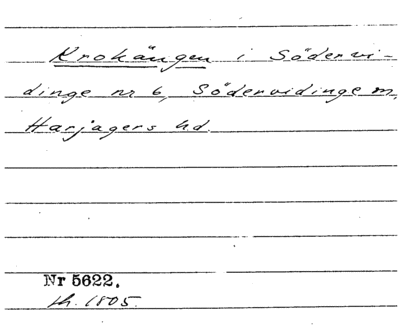 Krokängen i Södervi-
dinge nr 6, Södervidinge m,
Harjagers hd.
Nr 5622.
th. 1805.